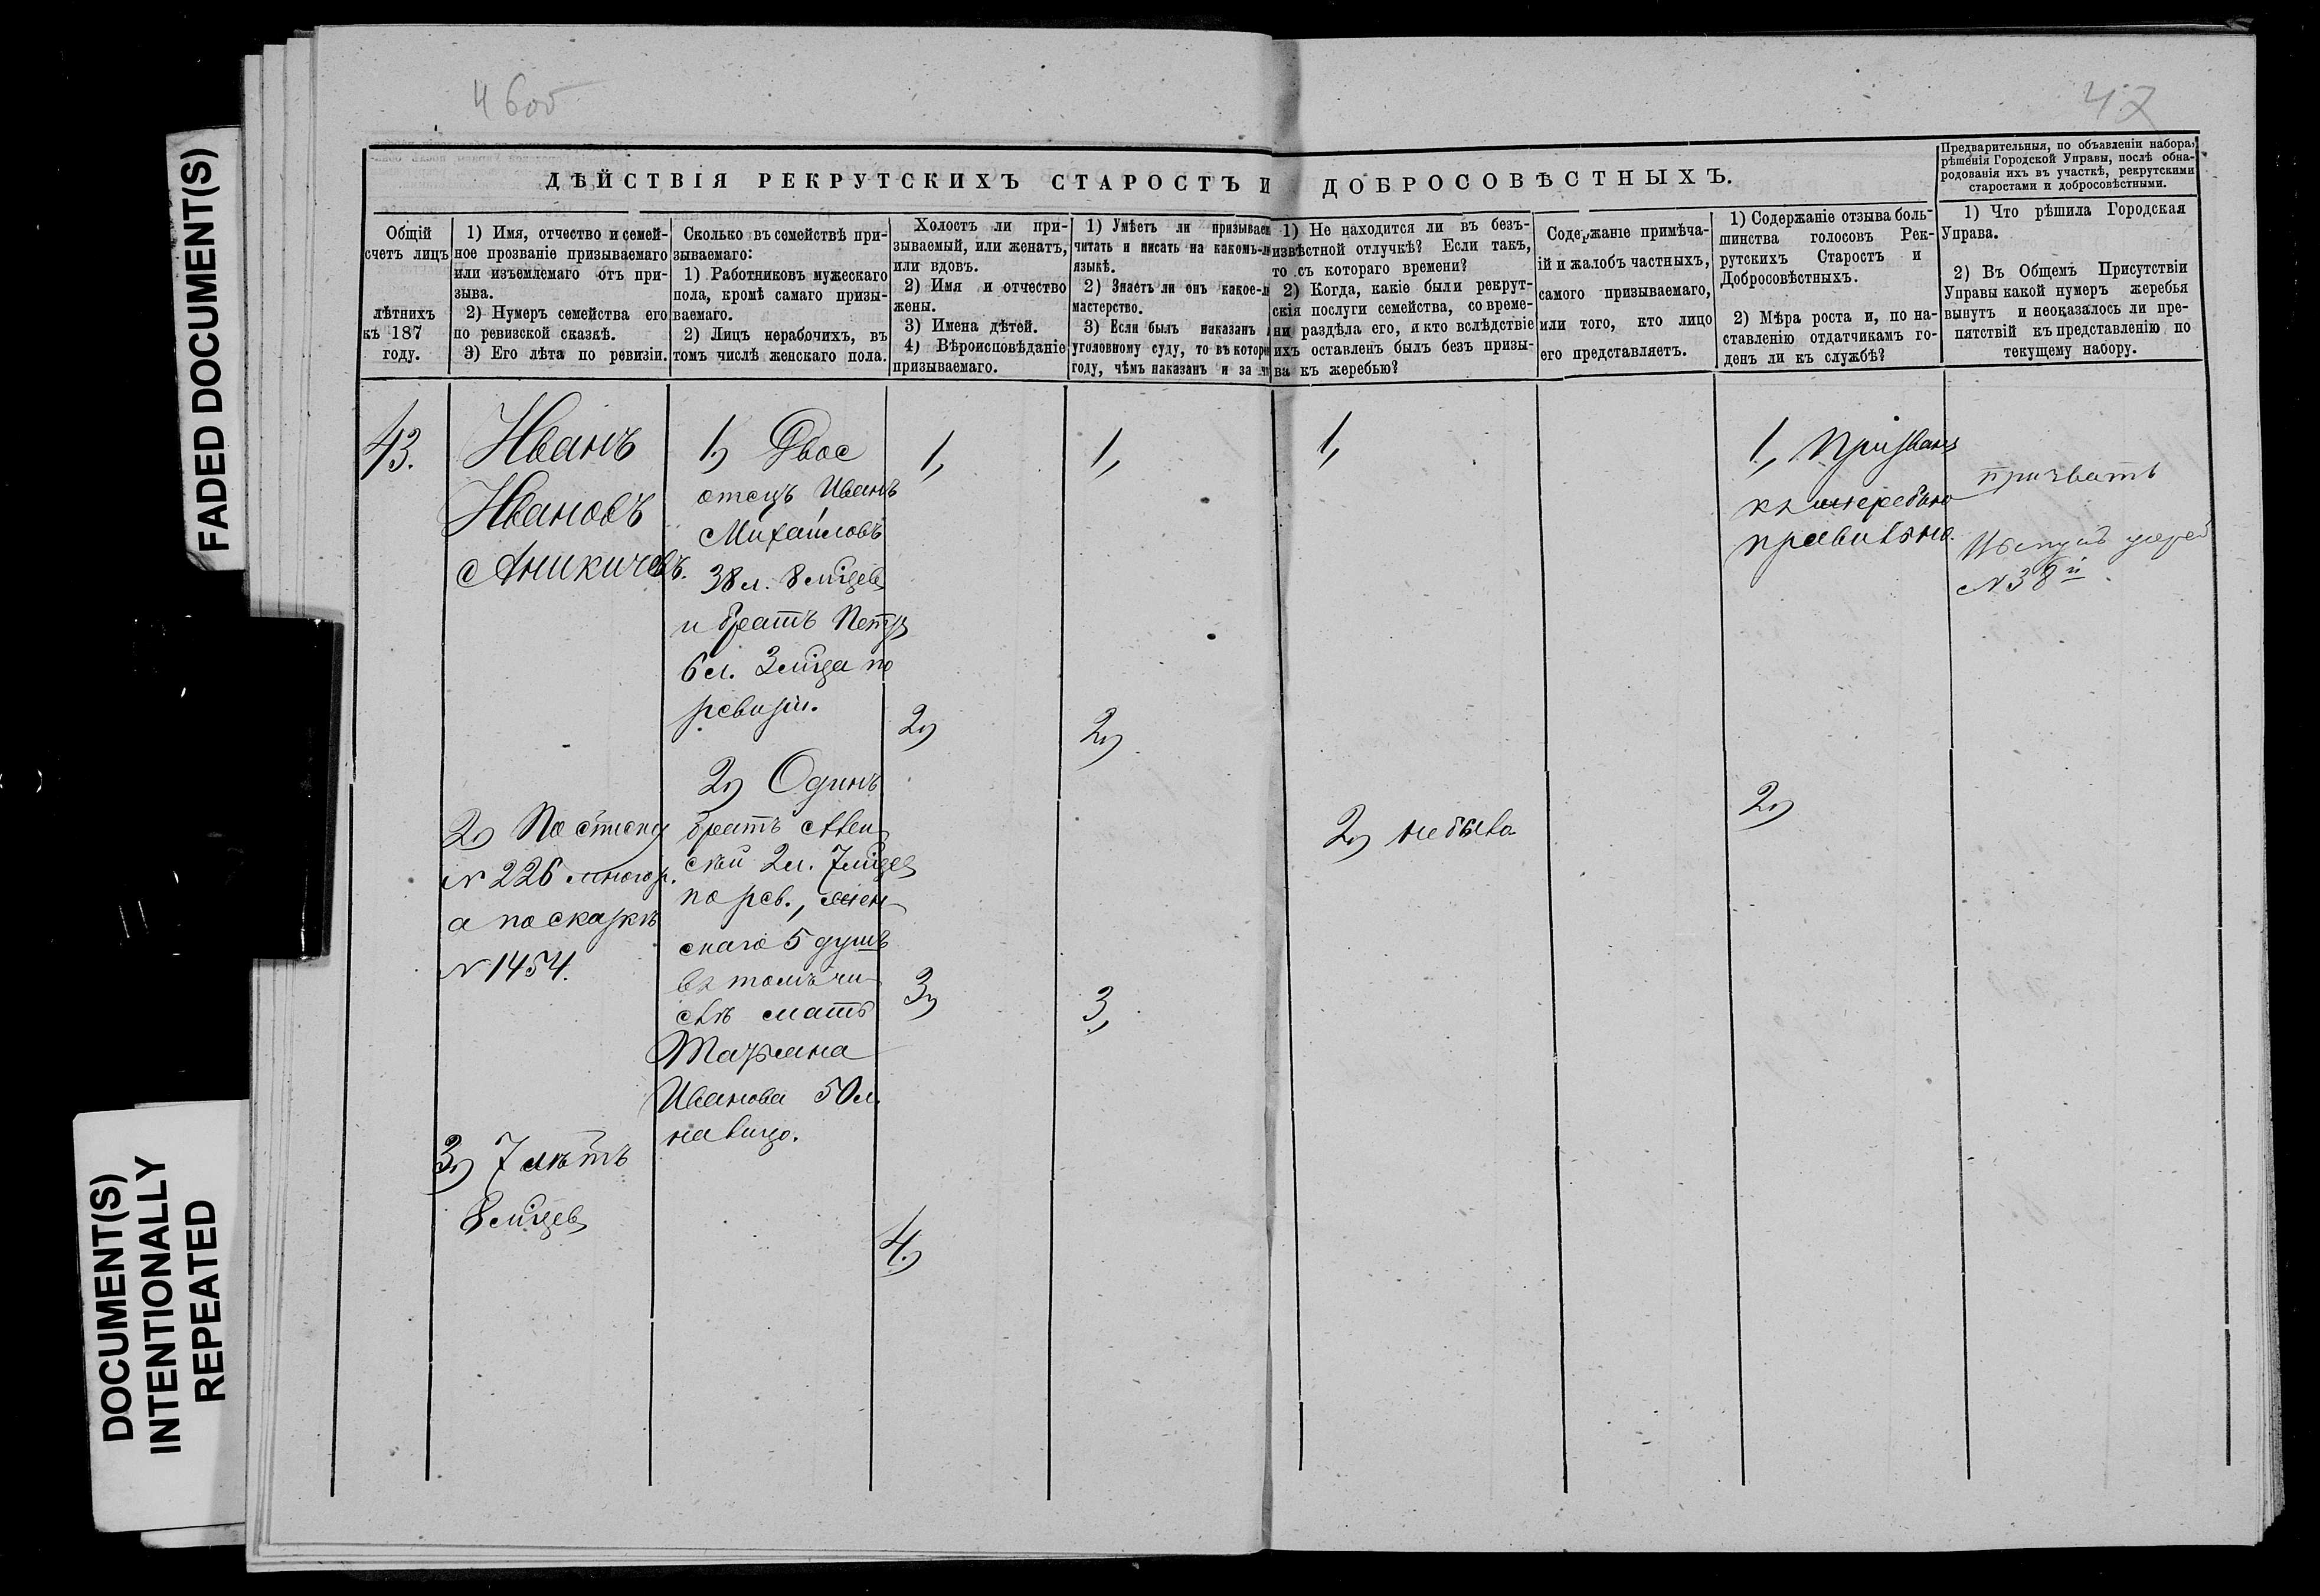 FADED DOCUMENT(S)
DOCUMENT(S)
INTENTIONALLY
REPEATED
46об
47
ДѢЙСТВІЯ РЕКРУТСКИХЪ СТАРОСТЪ И ДОБРОСОВѢСТНЫХЪ.
Предварительныя, по объявленіи набора,
рѣшенія Городской Управы, послѣ обна-
родованія ихъ въ участкѣ, рекрутскими
старостами и добросовѣстными.
Общій
счетъ лицъ
лѣтнихъ
къ 187
году.
1) Имя, отчество и семей-
ное прозваніе призываемаго
или изъемлемаго отъ при-
зыва.
2) Нумеръ семейства его
по ревизской сказкѣ.
3) Его лѣта по ревизіи.
Сколько въ семействѣ при-
зываемаго:
1) Работниковъ мужескаго
пола, кромѣ самаго призы-
ваемаго.
2) Лицъ нерабочихъ, въ
томъ числѣ женскаго пола.
Холостъ ли при-
зываемый, или женатъ,
или вдовъ.
2) Имя и отчество
жены.
3) Имена дѣтей.
4) Вѣроисповѣданіе
призываемаго.
1) Умѣетъ ли призываем
читать и писать на какомъ-л
языкѣ.
2) Знаетъ ли онъ какое-л
мастерство.
3) Если былъ наказанъ
уголовному суду, то въ котор
году, чѣмъ наказанъ и за ч
1) Не находится ли въ безъ-
извѣстной отлучкѣ? Если такъ,
то съ котораго времени?
2) Когда, какіе были рекрут-
скія послуги семейства, со време-
ни раздѣла его, и кто вслѣдствіе
ихъ оставленъ былъ безъ призы-
ва къ жеребью?
Содержаніе примѣча-
ій и жалобъ частныхъ,
самого призываемаго,
или того, кто лицо
его представляетъ.
1) Содержаніе отзыва боль-
шинства голосовъ Рек-
рутскихъ Старостъ и
Добросовѣстныхъ.
2) Мѣра роста и, по на-
ставленію отдатчикамъ го-
денъ ли къ службѣ?
1) Что рѣшила Городская
Управа.
2) Въ Общемъ Присутствіи
Управы какой нумеръ жеребья
вынутъ и неоказалось ли пре-
пятствій къ представленію по
текущему набору.
43.
Иванъ
Ивановъ
Аникичевъ.
2) По списку
№ 226 многор.
а по сказкѣ
№ 1454.
3) 7 лѣтъ
8 м‑цевъ
1) Двое
отецъ Иванъ
Михайловъ
38 л. 8 м‑цевъ
и братъ Петръ
6 л. 3 м‑ца по
ревизіи.
2) Одинъ
братъ Алек
сѣй 2 л. 7 м‑цевъ
по рев., жен-
скаго 5 душъ
въ томъ чи-
слѣ мать
Татьяна
Иванова 50 л.
на лицо.
1,
2)
3)
4)
1,
2)
3,
1,
2) не было
1, Призванъ
къ жеребью
правильно.
2)
призвать
№ 38й.